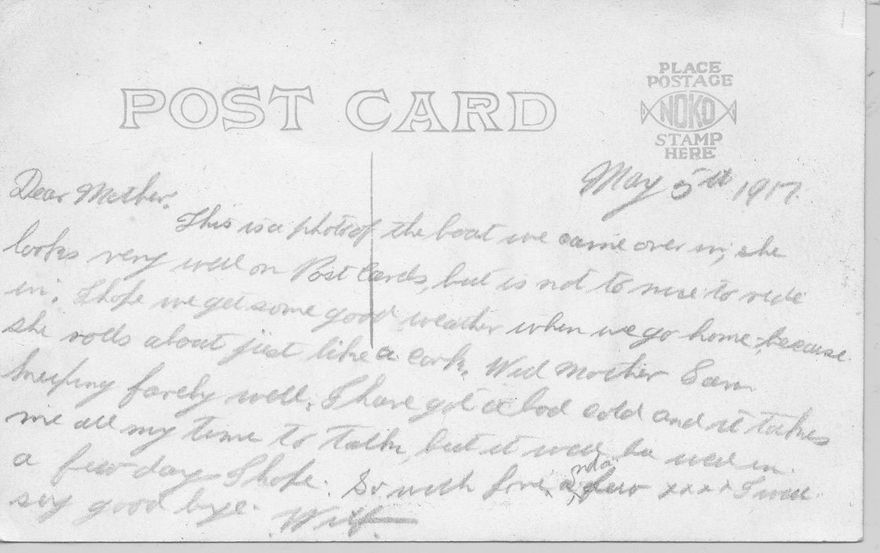 POST CARD
PLACE
POSTAGE
NOKO
STAMP
HERE
May 5th 1917.
Dear Mother.
This is a photo of the boat we came over in, she
looks very well on Post Cards, but is not to nice to ride
in. I hope we get some good weather when we go home, because
she rolls about just like a cork. Well Mother I am
keeping farely well, I have got a bad cold and it takes
me all my time to talk, but it will be well in
a few day I hope. So with love, and a few xxxx I will
say good bye. Wilf